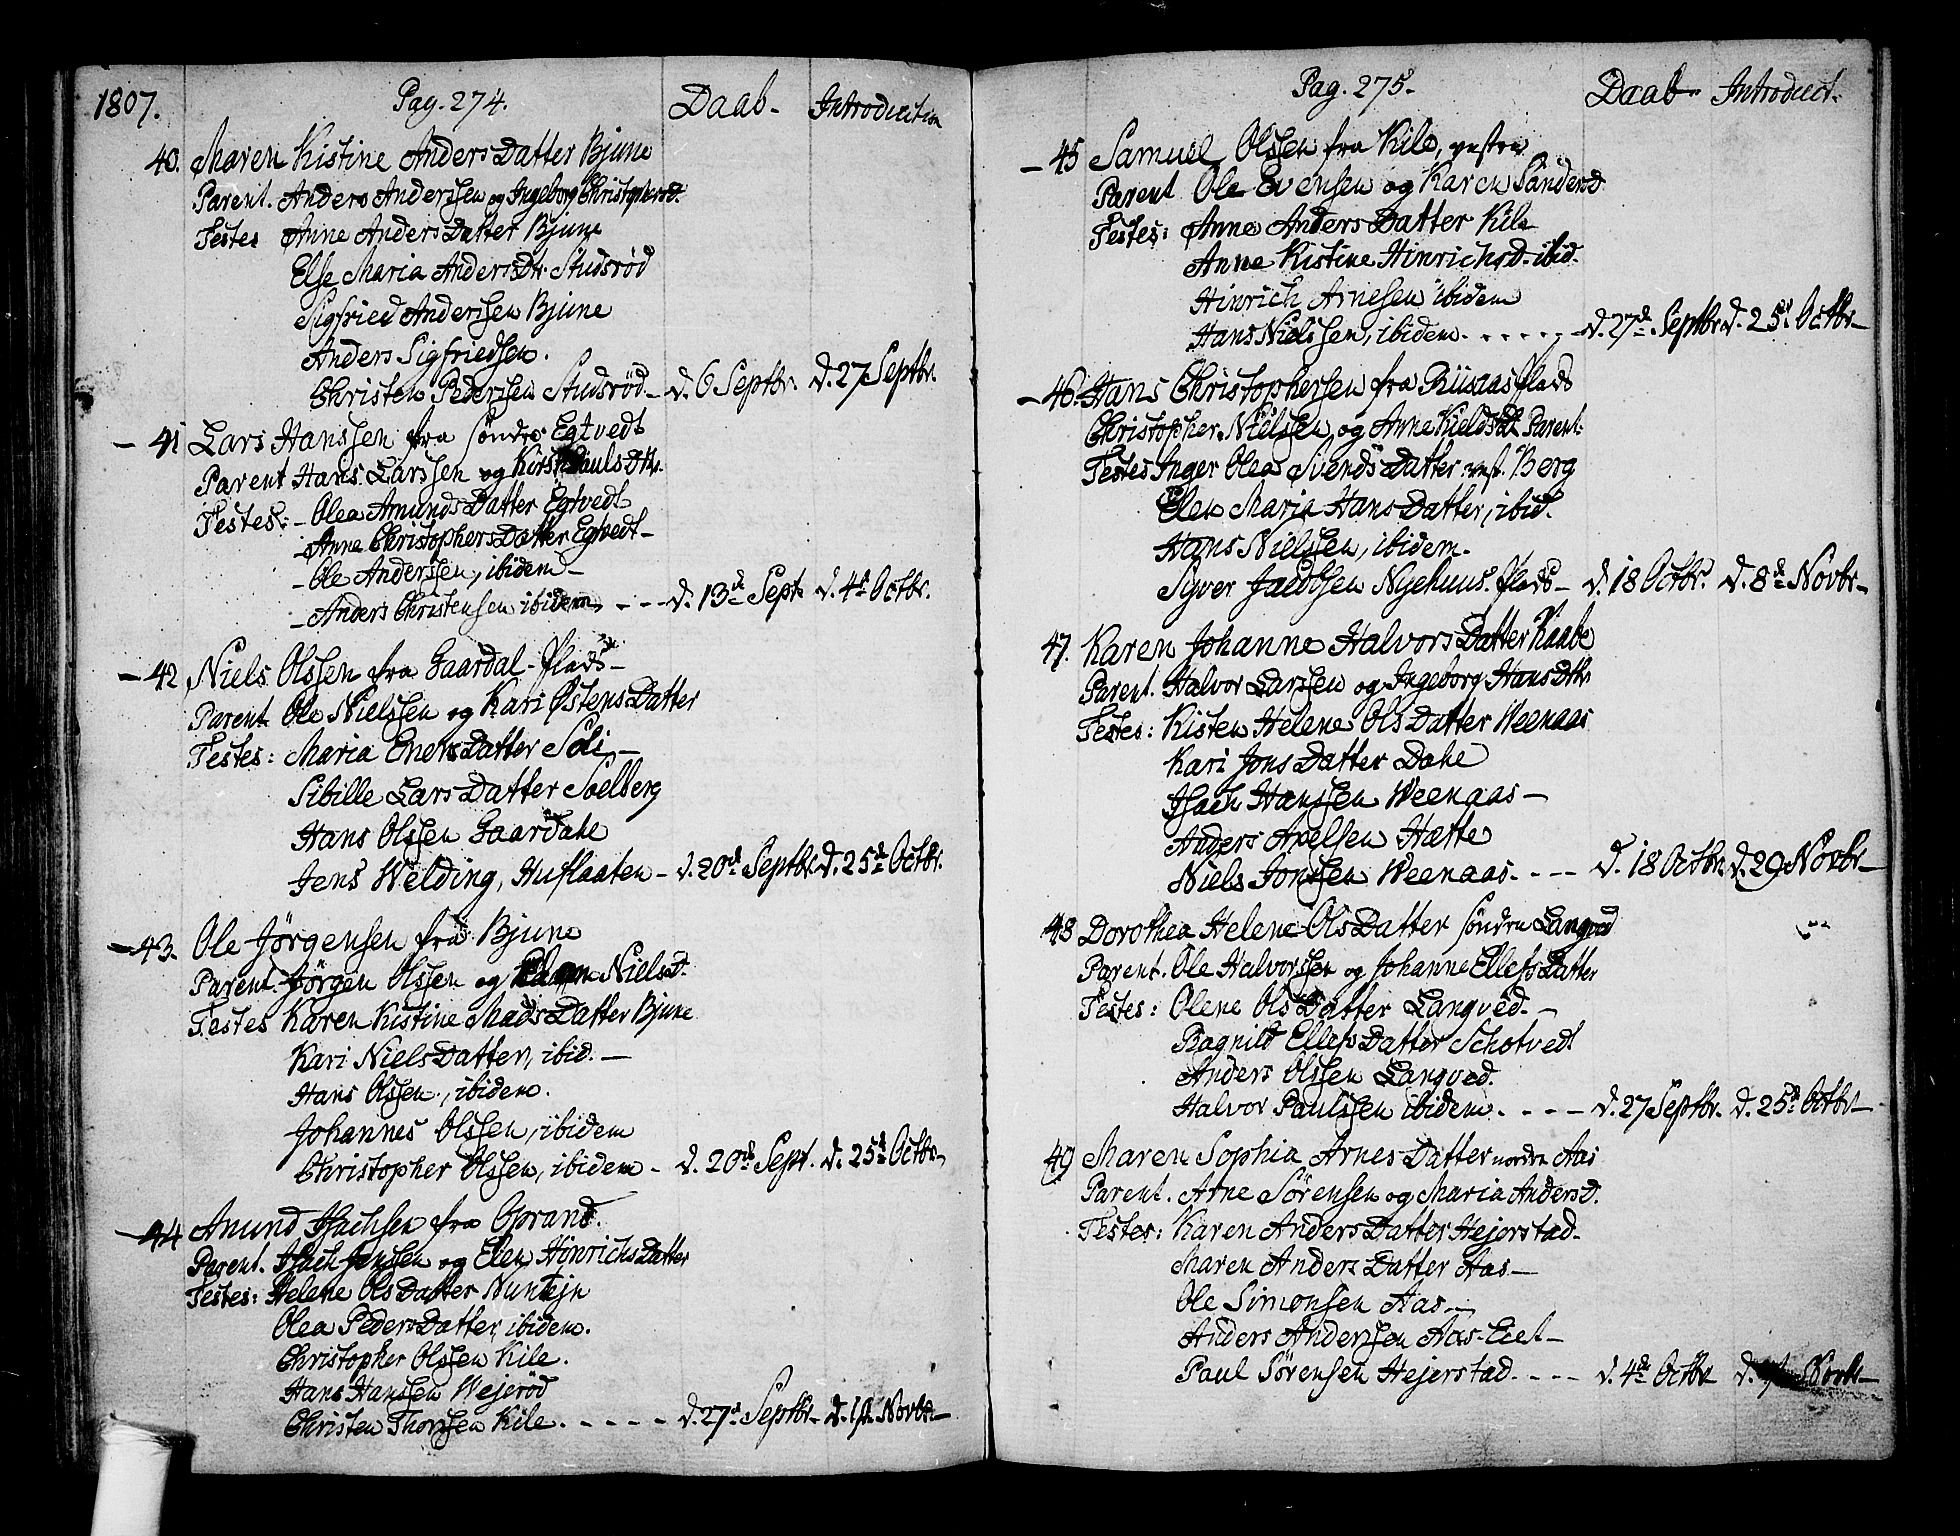 1807. Pag. 274. Daab - Introduction
40. Maren Kistine Anders Datter Bjune
Parent. Anders Anderssen og Ingeborg Christophersd.
Testes Anne Anders Datter Bjune
Else Maria Anders Dtr. Studsröd
Sigfried Anderssen Bjune
Anders Sigfriedsen.
Christen Pederssen Studsröd - d. 6 Septbr. d. 27 Septbr.
- 41 Lars Hanssen fra söndre Egtvedt
Parent Hans Larssen og Kirst Pauls Dtr.
Testes: - Olea Amunds Datter Egtvedt
- Anne Christophers Datter Egtvedt -
- Ole Anderssen, ibidem -
- Anders Christensen ibidem - - - d. 13d Sept. d. 4d Octbr.
- 42 Niels Olssen fra Gaardal-plads -
Parent Ole Nielssen og Kari Østens Datter
Testes: Maria Eners Datter Soli -
Sibille Lars Datter Soelberg
Hans Olssen Gaardahe
Jens Welding, Huflaaten - d. 20d Septbr. d. 25d Octbr.
- 43. Ole Jörgensen fra Bjune
Parent. Jörgen Olssen og Niels d.
Testes Karen Kistine Mads Datter Bjune
Kari Niels Datter, ibid. -
Hans Olssen, ibidem.
Johannes Olssen, ibidem
Christopher Olssen, ibidem - d. 20d Sept. d. 25d Octbr.
- 44 Amund Isachsen fra Oprand.
Parent. Isach Jenssen og Elen Hinrichs Datter
Testes: Helene Ols Datter Nuntejn
Olea Peders Datter, ibidem.
Christopher Olssen Kile.
Hans Hanssen Wejeröd
Christen Thorssen Kile. - - - - - d. 27d Septbr. d. 1st Novbr.
Pag. 275. Daab - Introduct.
- 45 Samuel Olssen fra Kile, vestre
Parent Ole Evensen og Karen Sanders d.
Testes: Anne Anders Datter Kile
Anne Kistine Hinrichs d. ibid.
Hinrich Arnesen ibidem
Hans Nielssen, ibidem. - - - - - d. 27d. Septbr. d. 25d Octbr -
- 46. Hans Christophersen fra Riisaas plads
Christopher Nielssen og Anne Kields Dt. Parent.
Testes Inger Olea Svends Datter vest. Berg
Elen Maria Hans Datter, ibid.
Hans Nielssen, ibidem.
Syver Jacobsen Nyehuus-plads - d. 18 Octbr. d. 8d Novbr -
47. Karen Johanne Halvors Datter Kaabe
Parent. Halvor Larssen og Ingeborg Hans Dtr.
Testes: Kisten Helene Ols Datter Weenaas
Kari Jons Datter Dahe
Isach Hanssen Weenaas -
Anders Axelsen Hætte
Niels Jonssen Weenaas. - - - d. 18 Octbr. d. 29 Novbr -
48 Dorothea Helene Ols Datter söndre Langved
Parent. Ole Halvorssen og Johanne Ellefs Datter
Testes: Olene Ols Datter Langved. -
Ragnild Ellefs Datter Schotvedt
Anders Olssen Langved.
Halvor Paulssen ibidem. - - - - d. 27 Septbr. d. 25d Octbr -
49 Maren Sophia Arnes Datter nordre Aas
Parent. Arne Sörensen og Maria Anders d.
Testes: Karen Anders Datter Hejerstad -
Maren Anders Datter Aas -
Ole Simonsen Aas -
Anders Anderssen Aas-Eiet -
Paul Sörensen Hejerstad. - - - - d. 4de Octbr d. Novbr -